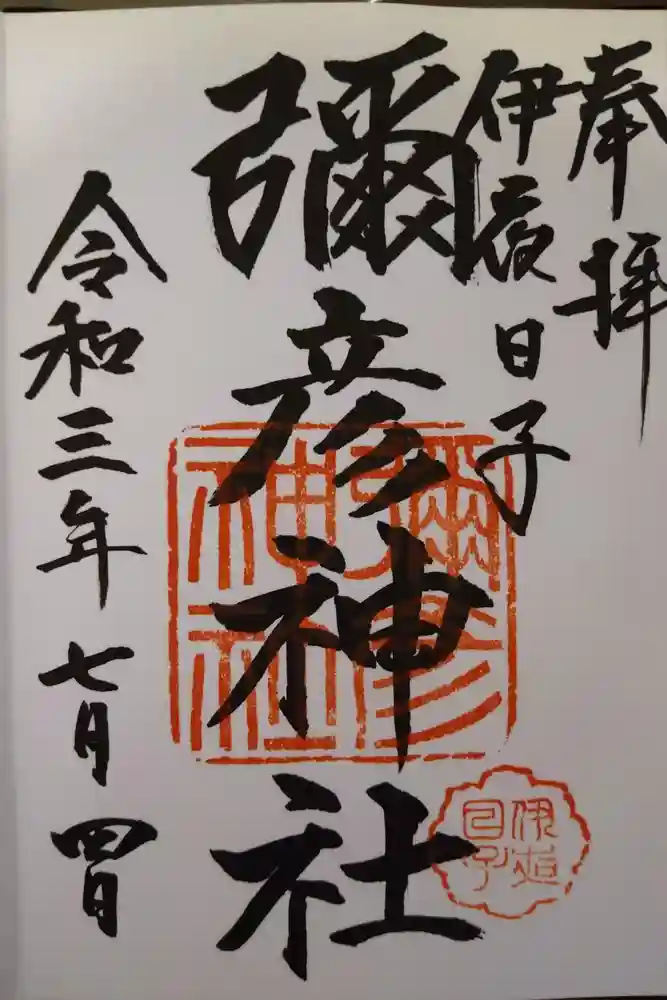 奉拝
伊夜日子
彌彦神社
令和三年七月四日
彌彦神社